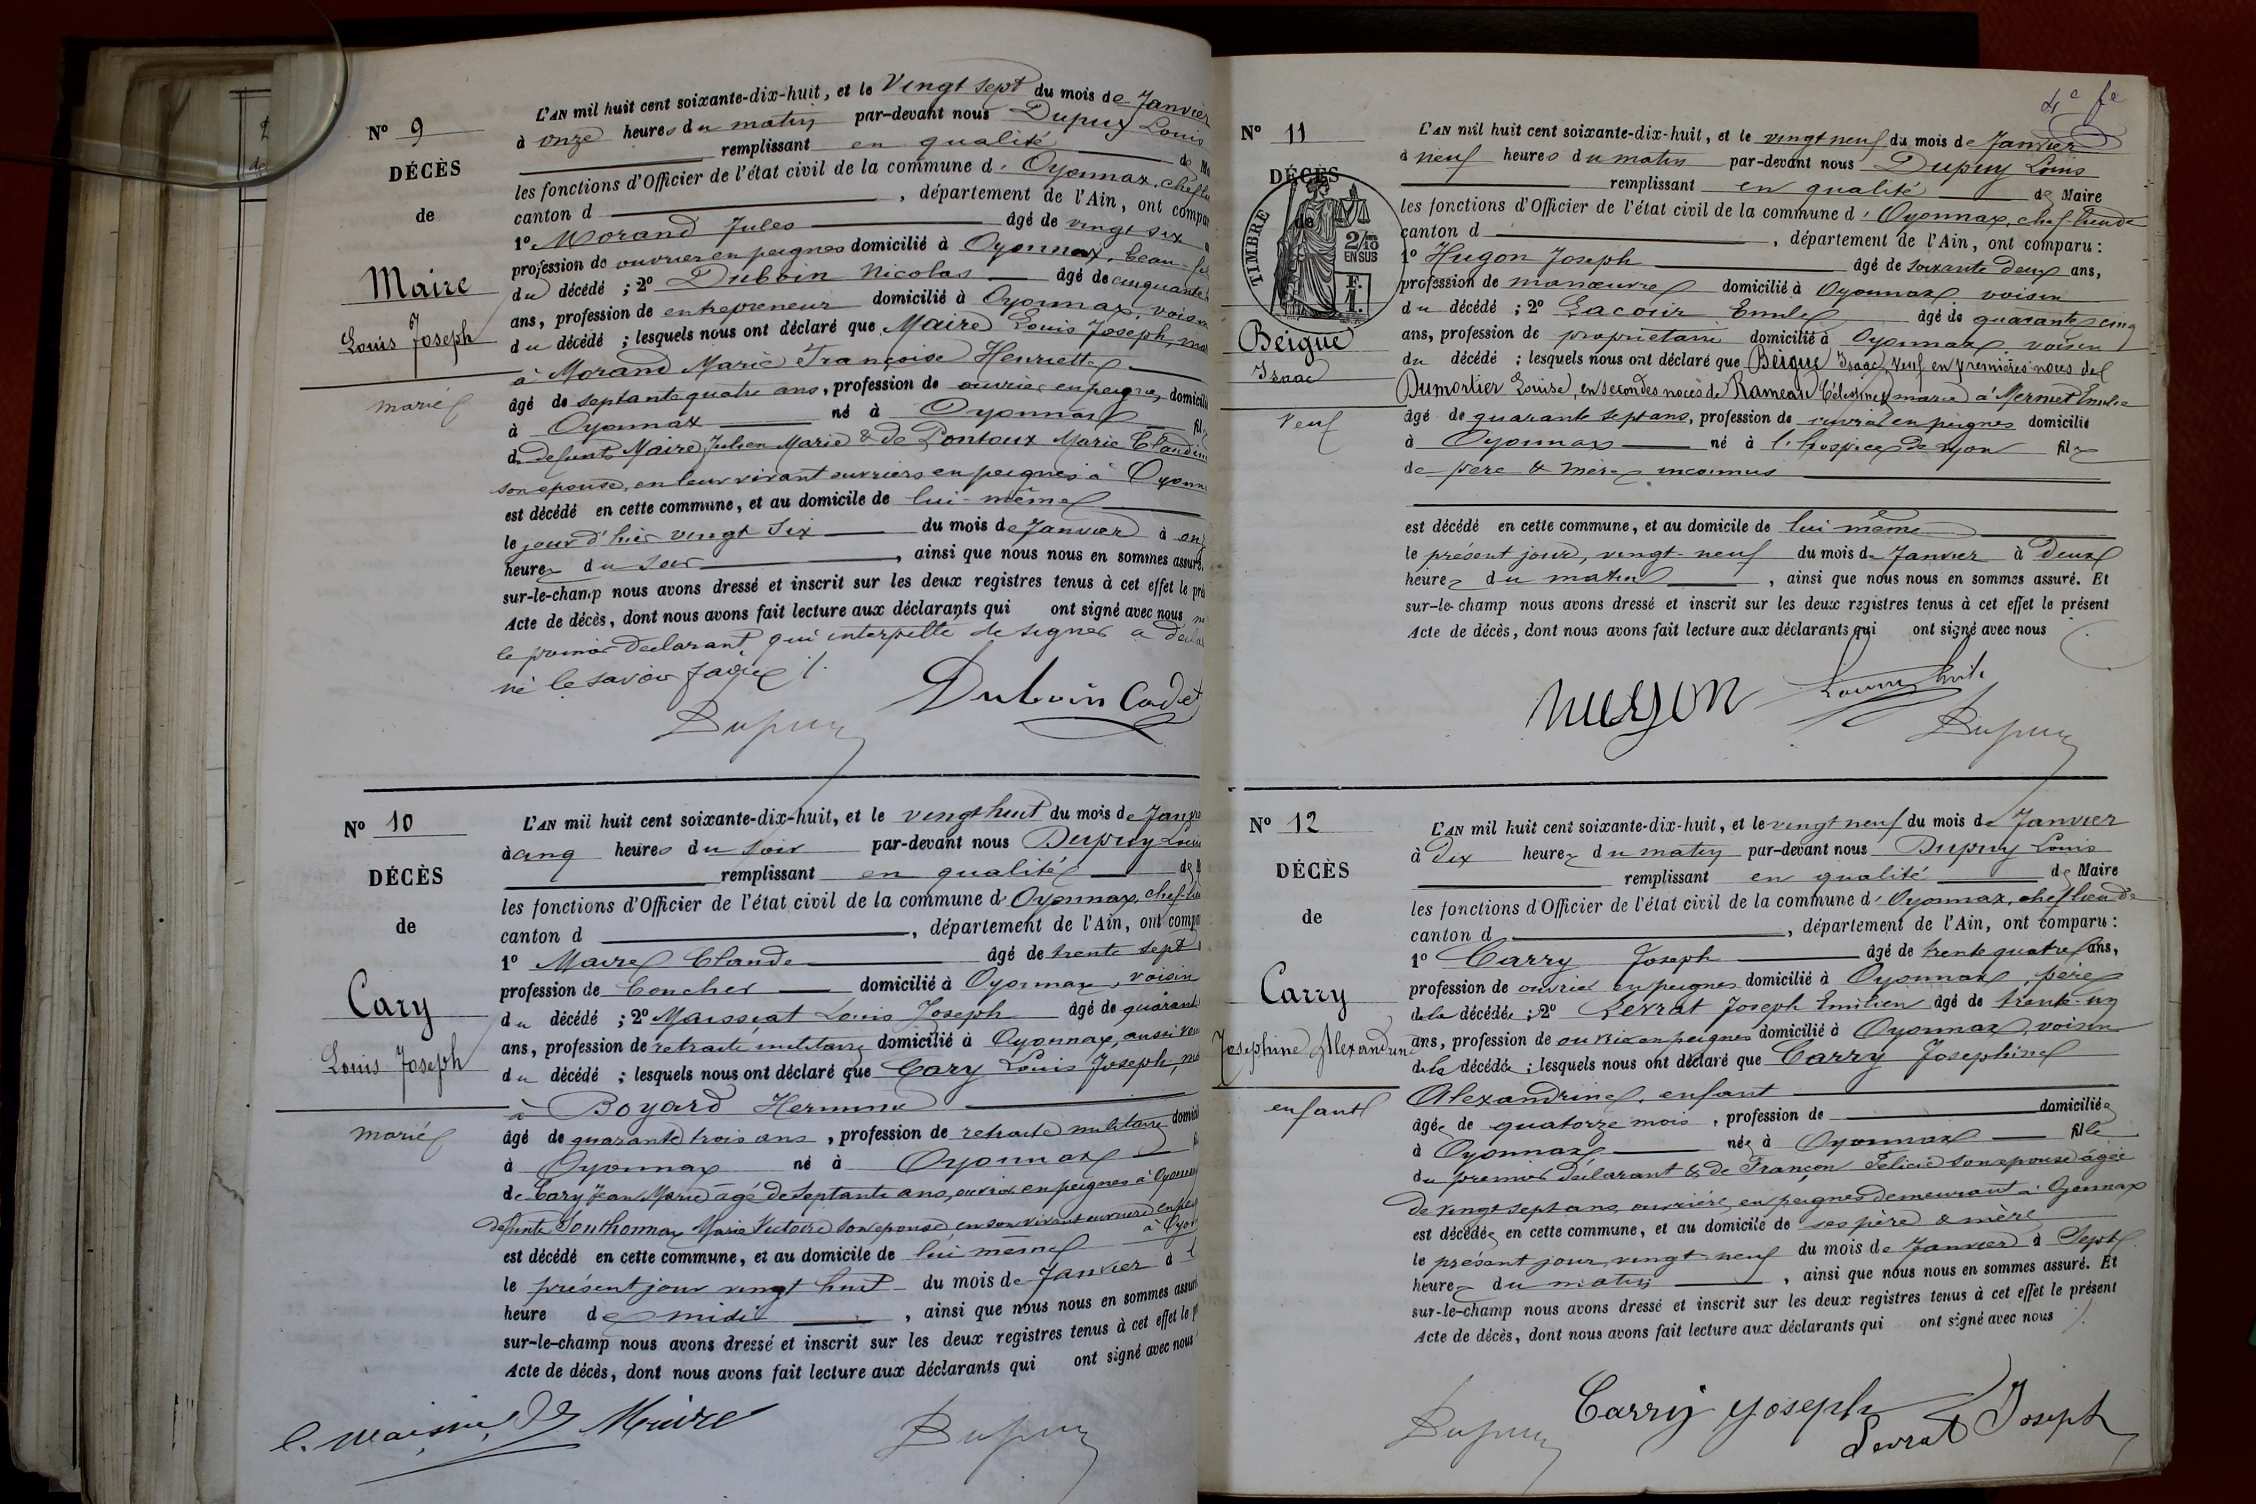 N° 9
DÉCÈS
de
Maire
Louis Joseph
marié
L'AN mil huit cent soixante-dix-huit, et le vingt sept du mois de Janvier
à onze heures du matin par-devant nous Dupuy Louis
remplissant en qualité de
les fonctions d'Officier de l'état civil de la commune d'Oyonnax, chef
canton d , département de l'Ain, ont
1° Morand Jules âgé de vingt six
profession de ouvrier en peignes domicilié à Oyonnax, beau
du décédé ; 2° Duboin Nicolas âgé de cinquante
ans, profession de entrepreneur domicilié à Oyonnax, voisin
du décédé ; lesquels nous ont déclaré que Maire Louis Joseph,
à Morand Marie Françoise Henriette
âgé de septante quatre ans, profession de ouvrier en peignes
à Oyonnax né à Oyonnax
de defunts Maire Julien Marie & de Pontoux Marie
son epouse, en leur vivant ouvriers en peignes à
est décédé en cette commune, et au domicile de lui-même
le jour d'hier vingt six du mois de Janvier à
heures du soir , ainsi que nous nous en sommes
sur-le-champ nous avons dressé et inscrit sur les deux registres tenus à cet effet le
Acte de décès, dont nous avons fait lecture aux déclarants qui ont signé avec nous
le premier declarant qui interpellé de signer a
ne le savoir faire ./.
Duboin Cadet
Dupuy
N° 10
DÉCÈS
de
Cary
Louis Joseph
marié
L'AN mil huit cent soixante-dix-huit, et le vingt huit du mois de
à cinq heures du soir par-devant nous Dupuy Louis
remplissant en qualité de
les fonctions d'Officier de l'état civil de la commune d'Oyonnax, chef
canton d , département de l'Ain, ont
1° Maire Claude âgé de trente sept
profession de domicilié à Oyonnax, voisin
du décédé ; 2° Maissiat Louis Joseph âgé de
ans, profession de retraité militaire domicilié à Oyonnax, aussi
du décédé ; lesquels nous ont déclaré que Cary Louis Joseph,
à Boyard
âgé de quarante trois ans, profession de retraité militaire
à Oyonnax né à Oyonnax
de Cary Jean Marie âgé de septante ans, ouvrier en peignes à
défunte Marie Victoire son epouse, en son vivant ouvrière
est décédé en cette commune, et au domicile de lui même à
le présent jour vingt huit du mois de Janvier à
heure de midi , ainsi que nous nous en sommes
sur-le-champ nous avons dressé et inscrit sur les deux registres tenus à cet effet le
Acte de décès, dont nous avons fait lecture aux déclarants qui ont signé avec nous
Maire
Dupuy
N° 11
DÉCÈS
de
TIMBRE
2/10 EN SUS
F. 1.
Beigue
Isaac
veuf
L'AN mil huit cent soixante-dix-huit, et le vingt neuf du mois de Janvier
à neuf heures du matin par-devant nous Dupuy Louis
remplissant en qualité de Maire
les fonctions d'Officier de l'état civil de la commune d'Oyonnax, chef lieu de
canton d , département de l'Ain, ont comparu :
1° Hugon Joseph âgé de soixante deux ans,
profession de manœuvre domicilié à Oyonnax voisin
du décédé ; 2° Lacour Emile âgé de quarante cinq
ans, profession de propriétaire domicilié à Oyonnax voisin
du décédé ; lesquels nous ont déclaré que Beigue Isaac, veuf en premières noces de
Dumortier Louise, en secondes noces de Rameau Célestine, marié à Mermet Emilie
âgé de quarante sept ans, profession de ouvrier en peignes domicilié
à Oyonnax né à l'hospice de Lyon fils
de père & mère inconnus
est décédé en cette commune, et au domicile de lui même
le présent jour, vingt-neuf du mois de Janvier à deux
heures du matin , ainsi que nous nous en sommes assuré. Et
sur-le-champ nous avons dressé et inscrit sur les deux registres tenus à cet effet le présent
Acte de décès, dont nous avons fait lecture aux déclarants qui ont signé avec nous
hugon
Dupuy
N° 12
DÉCÈS
de
Carry
Josephine Alexandrine
enfant
L'AN mil huit cent soixante-dix-huit, et le vingt neuf du mois de Janvier
à dix heures du matin par-devant nous Dupuy Louis
remplissant en qualité de Maire
les fonctions d'Officier de l'état civil de la commune d'Oyonnax, chef lieu de
canton d , département de l'Ain, ont comparu :
1° Carry Joseph âgé de trente quatre ans,
profession de ouvrier en peignes domicilié à Oyonnax, père
de la décédée ; 2° Levrat Joseph Emilien âgé de trente-un
ans, profession de ouvrier en peignes domicilié à Oyonnax, voisin
de la décédée ; lesquels nous ont déclaré que Carry Josephine
Alexandrine, enfant
âgée de quatorze mois, profession de domiciliée
à Oyonnax née à Oyonnax fille
du premier déclarant & de Françon Félicie son epouse âgée
de vingt sept ans, ouvrière en peignes demeurant à Oyonnax
est décédée en cette commune, et au domicile de ses père & mère
le présent jour, vingt-neuf du mois de Janvier à Sept
heures du matin , ainsi que nous nous en sommes assuré. Et
sur-le-champ nous avons dressé et inscrit sur les deux registres tenus à cet effet le présent
Acte de décès, dont nous avons fait lecture aux déclarants qui ont signé avec nous ./.
Carry Joseph
Levrat Joseph
Dupuy